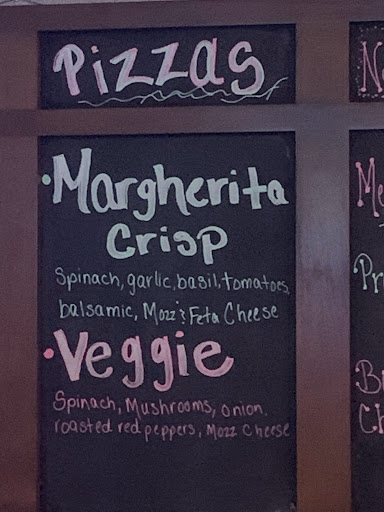 Pizzas
• Margherita
Crisp
Spinach, garlic, basil, tomatoes,
balsamic, Mozz & Feta Cheese
• Veggie
Spinach, Mushrooms, Onion,
roasted red peppers, Mozz Cheese